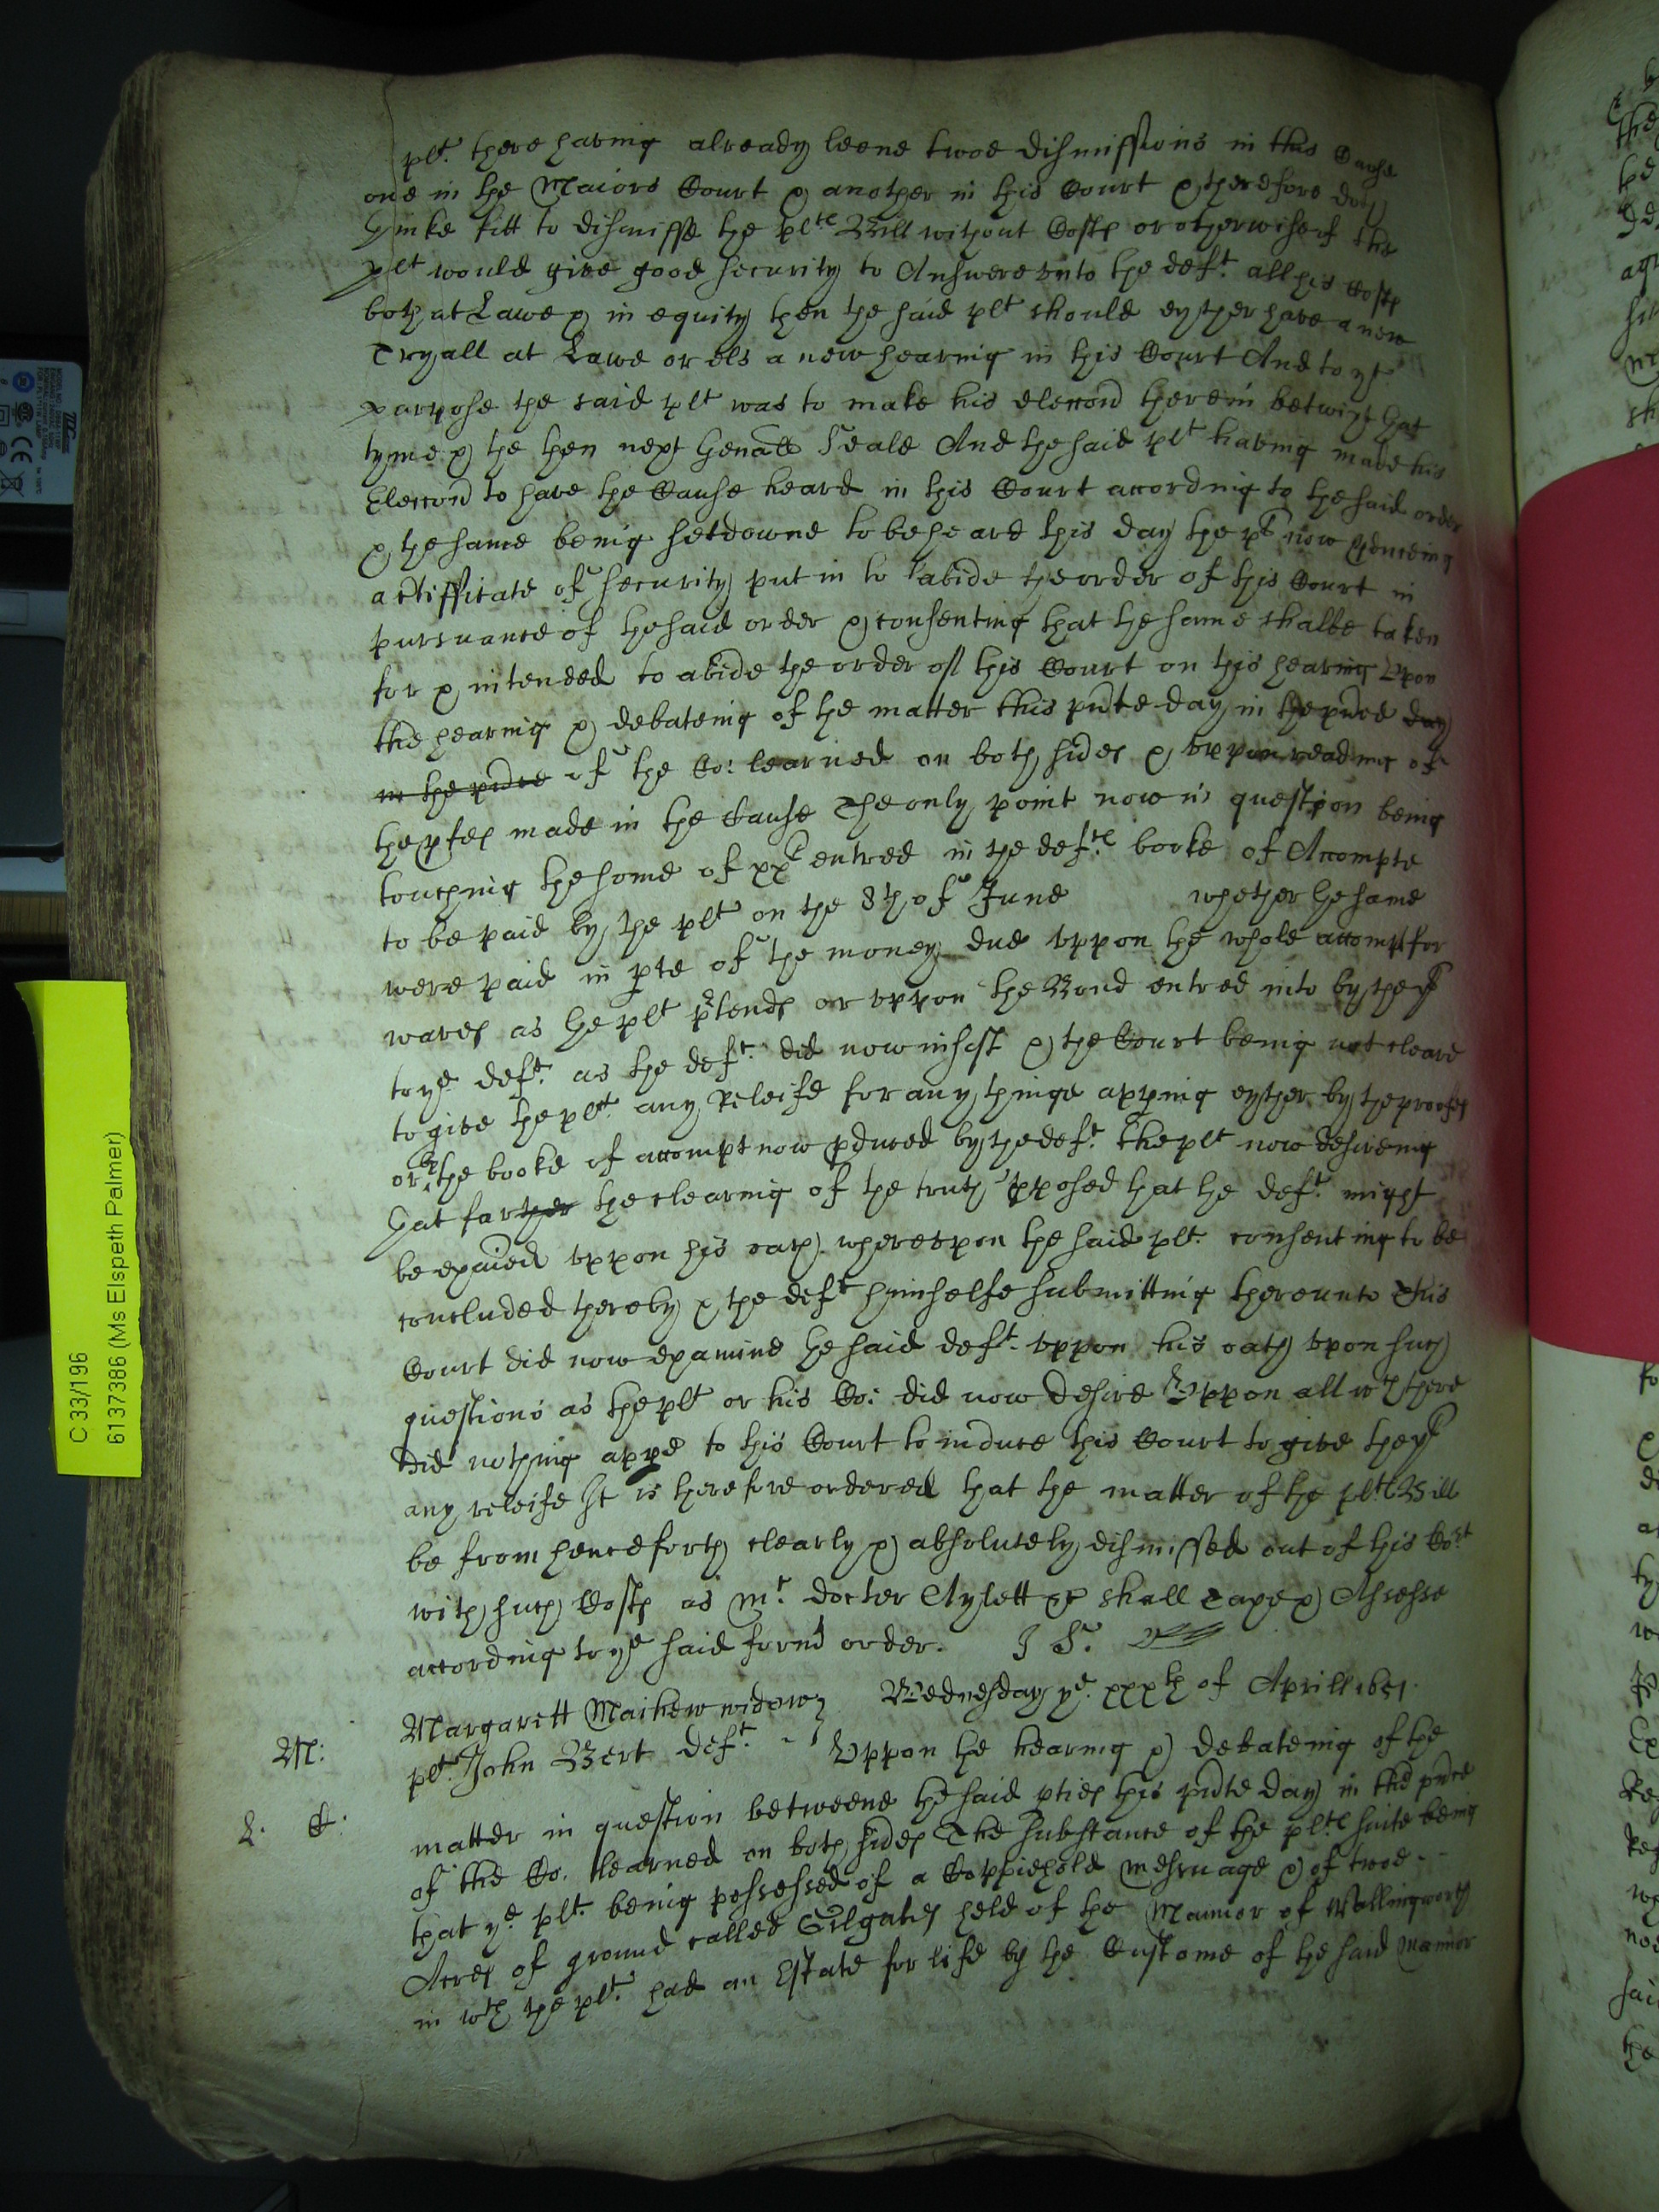 plt. there having already beene twoe dismissions in this Cause
one in the Maiors Court & another in this Court & therefore doth
thinke fitt to dismisse the plts Bill without Costs or otherwise if the
plt would give good security to Answere unto the deft. all his Costs
both at Lawe & in equity then the said plt should eyther have a new
Tryall at Lawe or els a new hearing in this Court And to yt
purpose the said plt was to make his eleccon therein betwixt that
tyme & the then next Genall Seale And the said plt having made his
Eleccon to have the Cause heard in this Court according to the said order
& the same being set downe to be heard this day the plt now pduceing
a Ctifficate of security put in to abide the order of this Court in
pursuance of the said order & consenting that the same shalbe taken
for & intended to abide the order of this Court on this hearing Upon
the hearing & debateing of the matter this pnte day in the pnce day
in the pnce of the Co: learned on both sides & uppon reading of
the pfes made in the Cause The only point now in question being
touching the some of xxl entred in the defts booke of Accompte
to be paid by the plt on the 8th of June whether the same
were paid in pte of the money due uppon the whole accompt for
wares as the plt ptends or uppon the Bond entred into by the plt
to ye deft. as the deft. did now insist & the Court being not cleare
to give the plt. any Releife for any thinge apping eyther by the proofes
or by the booke of accompt now pduced by the deft. the plt now desireing
that farther the clearing of the truth pposed that the deft. might
be exaied uppon his oath whereupon the said plt consenting to be
concluded thereby & the deft himselfe submitting thereunto This
Court did now examine the said deft. uppon his oath upon such
questions as the plt or his Co: did now desire Uppon all wch there
did nothing appe to this Court to induce this Court to give the plt
any releife It is therefore ordered that the matter of the plts Bill
be from henceforth clearly & absolutely dismissed out of this Cort
with such Costs as Mr. docter Aylett shall taxe & Assesse
according to ye said formd order. J S.
Margarett Maihew widow Wednesday ye. xxxth of Aprill 1651.
M: plt. John Bert deft. Uppon the hearing & debateing of the
L. C. matter in question betweene the said pties this pnte day in the pnce
of the Co. learned on both sides The substance of the plts suite being
that ye plt. being possessed of a Coppiehold messuage & of twoe
Acres of ground called Gilgates held of the Mannor of Wallingworth
in wch the plt. had an Estate for life by the Custome of the said mannor
C 33/196
6137386 (Ms Elspeth Palmer)